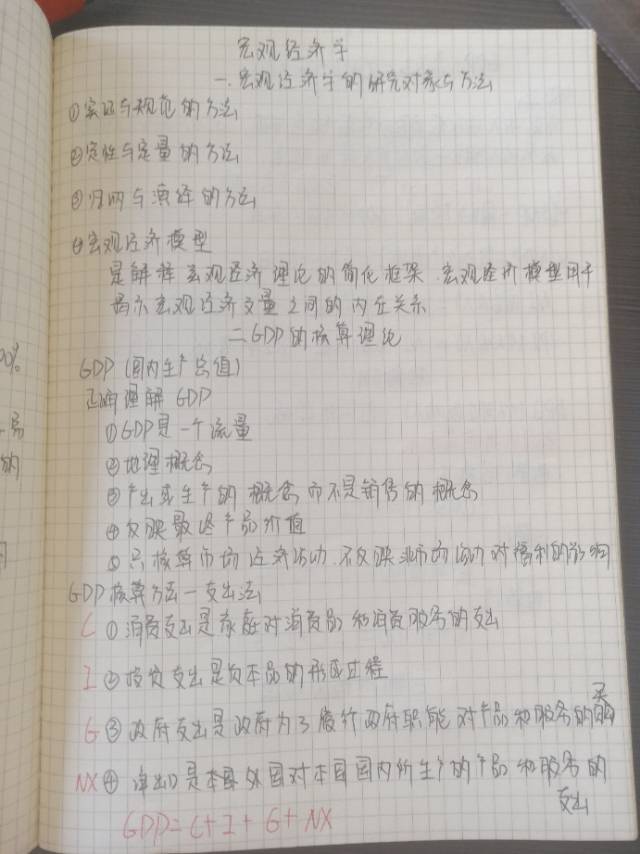 宏观经济学
一.宏观经济学的研究对象与方法
①实证与规范的方法
②定性与定量的方法
③归纳与演绎的方法
④宏观经济模型
是解释宏观经济理论的简化框架.宏观经济模型用于
揭示宏观经济变量之间的内在关系
二GDP的核算理论
GDP(国内生产总值)
正确理解GDP
①GDP是一个流量
②地理概念
③产出或生产的概念而不是销售的概念
④反映最终产品价值
⑤只核算市场经济活动.不反映非市场活动对福利的影响
GDP核算方法一支出法
C ①消费支出是家庭对消费品和消费服务的支出
I ②投资支出是资本品的形成过程
G ③政府支出是政府为了履行政府职能对产品和服务的购买
NX ④净出口是本国外国对本国国内所生产的产品和服务的
支出
GDP=C+I+G+NX
00%
易
的